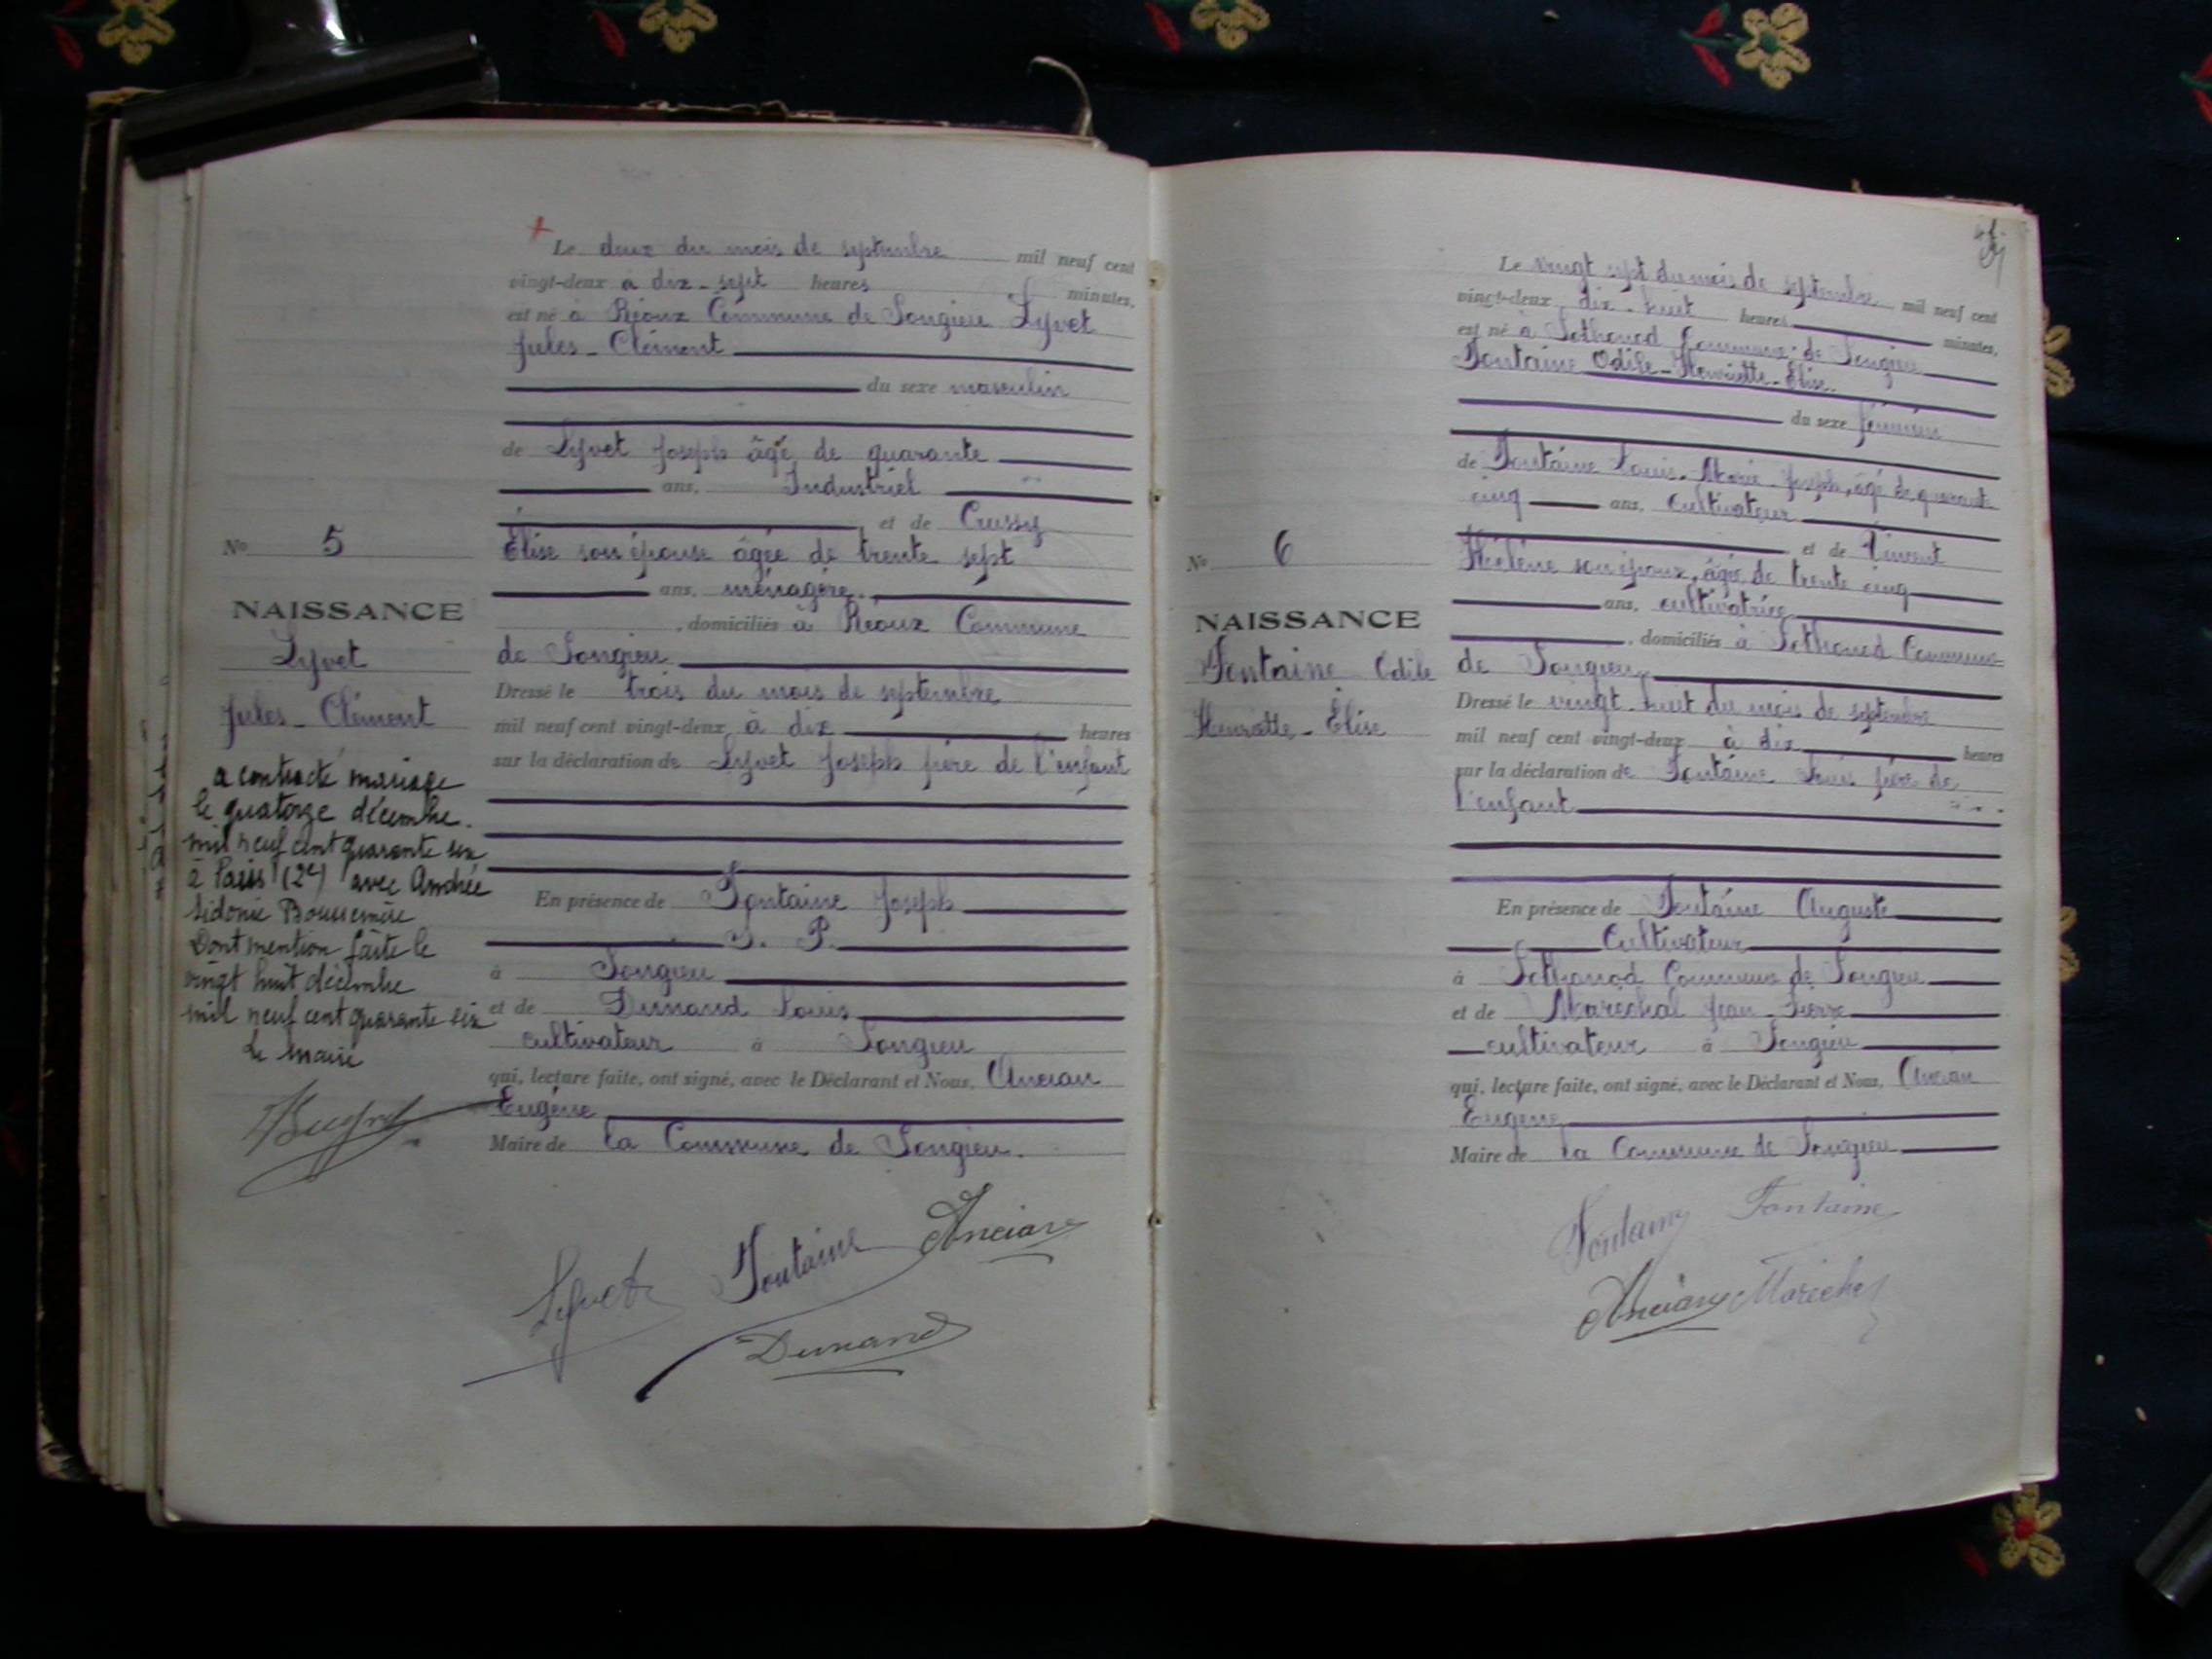 Le deux du mois de septembre mil neuf cent
vingt-deux à dix-sept heures minutes,
est né à Réoux Commune de Songieu Lyvet
Jules-Clément
du sexe masculin
de Lyvet Joseph âgé de quarante
ans, Industriel
et de Crussy
Élise son épouse âgée de trente sept
ans, ménagère.
, domiciliés à Réoux Commune
de Songieu
Dressé le trois du mois de septembre
mil neuf cent vingt-deux à dix heures
sur la déclaration de Lyvet Joseph père de l'enfant
En présence de Fontaine Joseph
à Songieu
et de Dunand Louis
cultivateur à Songieu
qui, lecture faite, ont signé, avec le Déclarant et Nous, Ancian
Eugène
Maire de la Commune de Songieu.
Lyvet Fontaine Ancian
Dunand
No 5
NAISSANCE
Lyvet
Jules-Clément
a contracté mariage
le quatorze décembre
mil neuf cent quarante six
à Paris (2e) avec Andrée
Sidonie
Dont mention faite le
vingt huit décembre
mil neuf cent quarante six
Le Maire
Le vingt sept du mois de septembre mil neuf cent
vingt-deux dix-huit heures minutes,
est né à Sothonod Commune de Songieu
Fontaine Odile-Henriette-Élise
du sexe féminin
de Fontaine Louis-Marie-Joseph, âgé de quarante
cinq ans, Cultivateur
et de
Hélène son épouse, âgée de trente cinq
ans, cultivatrice
, domiciliés à Sothonod Commune
de Songieu
Dressé le vingt-huit du mois de septembre
mil neuf cent vingt-deux à dix heures
sur la déclaration de Fontaine Louis père de
l'enfant
En présence de Fontaine Auguste
Cultivateur
à Sothonod Commune de Songieu
et de Maréchal Jean-Pierre
cultivateur à Songieu
qui, lecture faite, ont signé, avec le Déclarant et Nous, Ancian
Eugène
Maire de la Commune de Songieu
Fontaine Fontaine
Ancian Maréchal
No 6
NAISSANCE
Fontaine Odile
Henriette-Élise